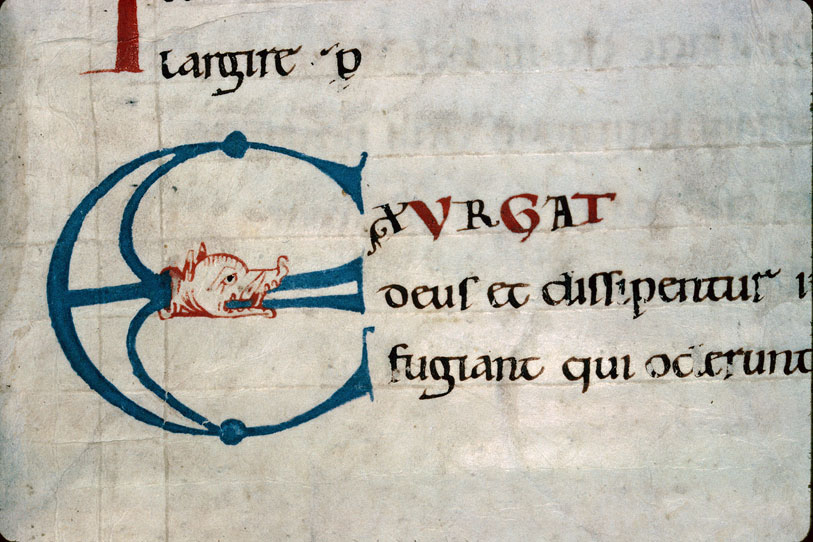 largire p
EXVRGAT
deus et dissipentur
fugiant qui oderunt